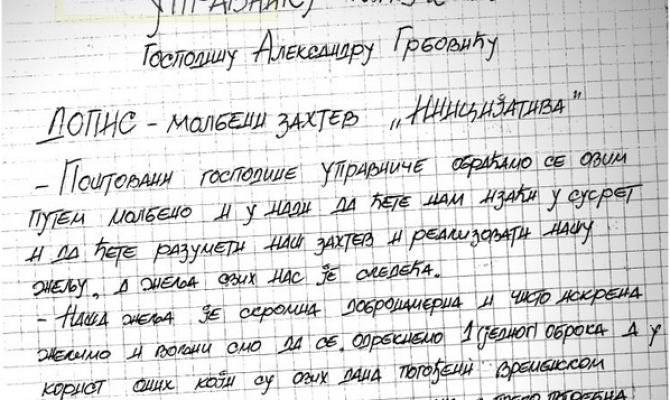 УПРАВНИКУ
Господину Александру Грбовићу
ДОПИС - МОЛБЕНИ ЗАХТЕВ „ИНИЦИЈАТИВА"
- Поштовани господине управниче обраћамо се овим
путем молбено и у нади да ћете нам изаћи у сусрет
и да ћете разумети наш захтев и реализовати нашу
жељу, а жеља свих нас је следећа.
- Наша жеља је скромна добронамерна и чисто искрена
желимо и вољни смо да се одрекнемо 1 (једног) оброка а у
корист оних који су ових дана погођени временском